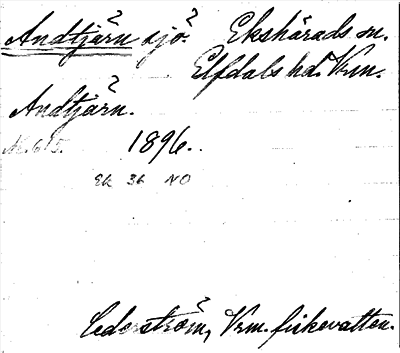 Andtjärn sjö. Ekshärads sn.
Elfdals hd. Vrm.
Andtjärn.
1896.
Ek 36 NO
Cederström, Vrm. fiskevatten.